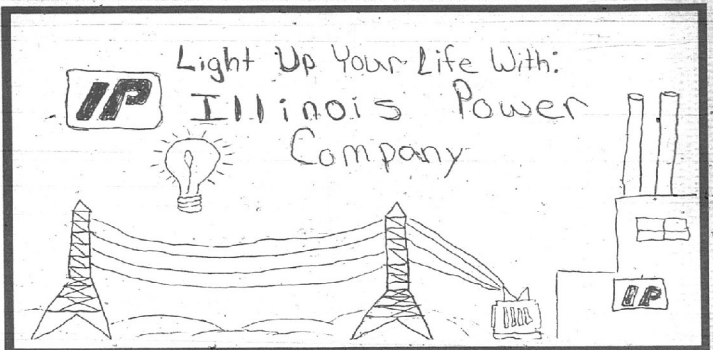 Light Up Your Life With:
IP
Illinois Power
Company
IP